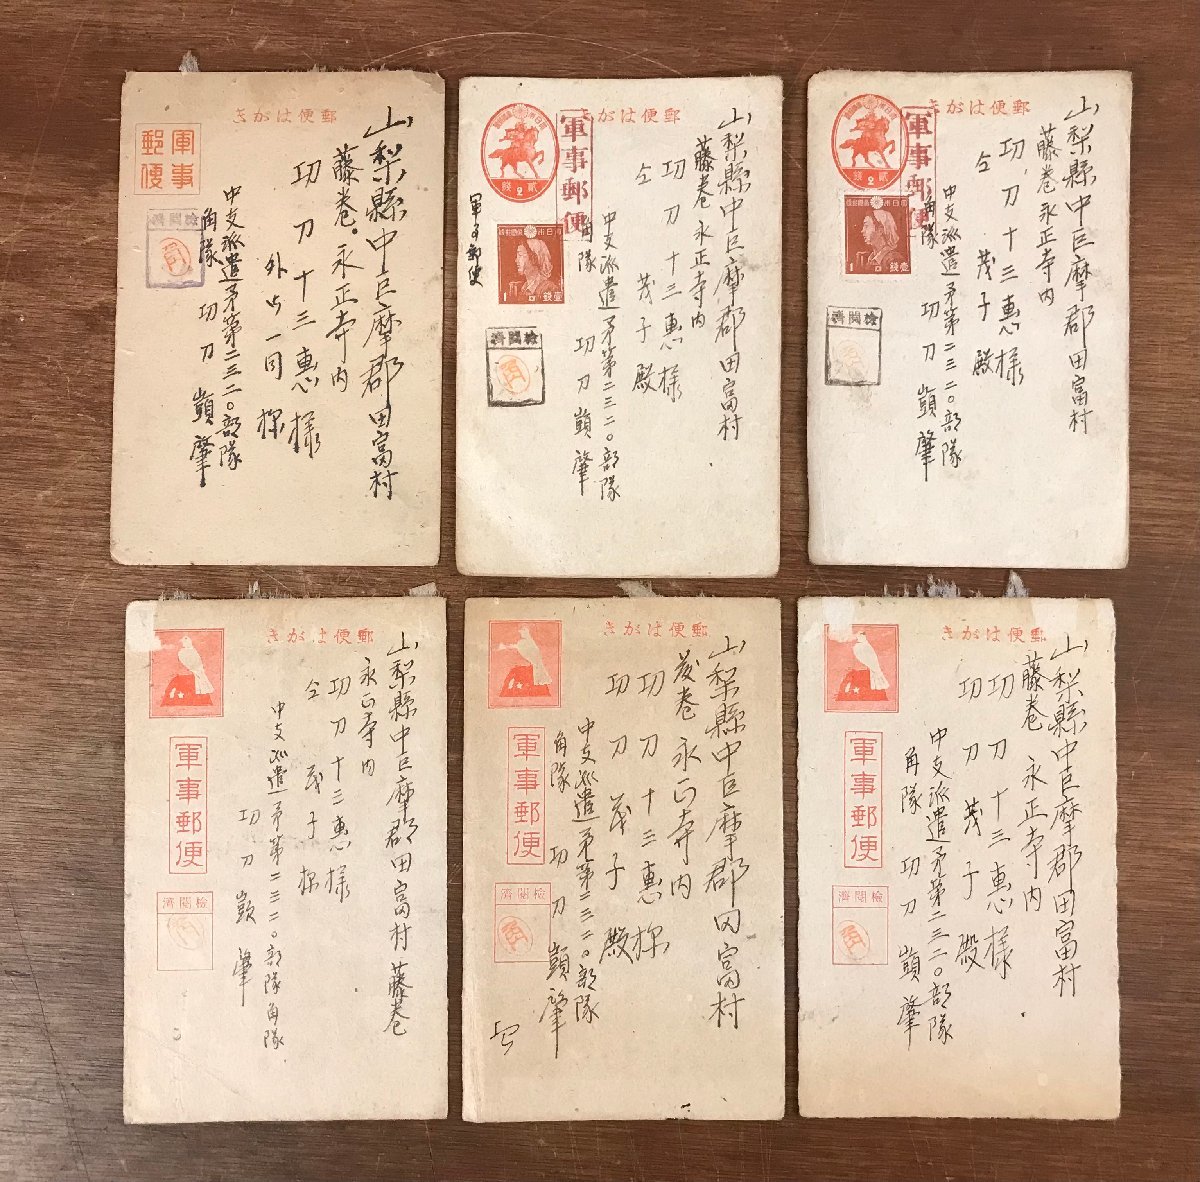 郵便はがき
軍事
郵便
検閲済
角
山梨縣中巨摩郡田富村
藤巻永正寺内
功刀十三惠様
外御一同様
中支派遣矛第二三二〇部隊
角隊 功刀 肇
郵便はがき
大日本帝国郵便
貳 2 銭
軍事郵便
大日本帝国郵便
1 壹銭
軍事郵便
検閲済
角
山梨縣中巨摩郡田富村
藤巻永正寺内
功刀十三惠様
仝 茂子殿
中支派遣矛第二三二〇部隊
角隊 功刀 肇
郵便はがき
貳 2 銭
軍事郵便
1 壹銭
検閲済
山梨縣中巨摩郡田富村
藤巻永正寺内
功刀十三惠様
仝 茂子殿
中支派遣矛第二三二〇部隊
角隊 功刀 肇
郵便はがき
軍事郵便
検閲済
山梨縣中巨摩郡田富村藤巻
永正寺内
功刀十三惠様
仝 茂子様
中支派遣矛第二三二〇部隊角隊
功刀 肇
郵便はがき
軍事郵便
検閲済
角
山梨縣中巨摩郡田富村
藤巻永正寺内
功刀十三惠様
功刀茂子殿
中支派遣矛第二三二〇部隊
角隊 功刀 肇
郵便はがき
軍事郵便
検閲済
角
山梨縣中巨摩郡田富村
藤巻永正寺内
功刀十三惠様
功刀茂子殿
中支派遣矛第二三二〇部隊
角隊 功刀 肇